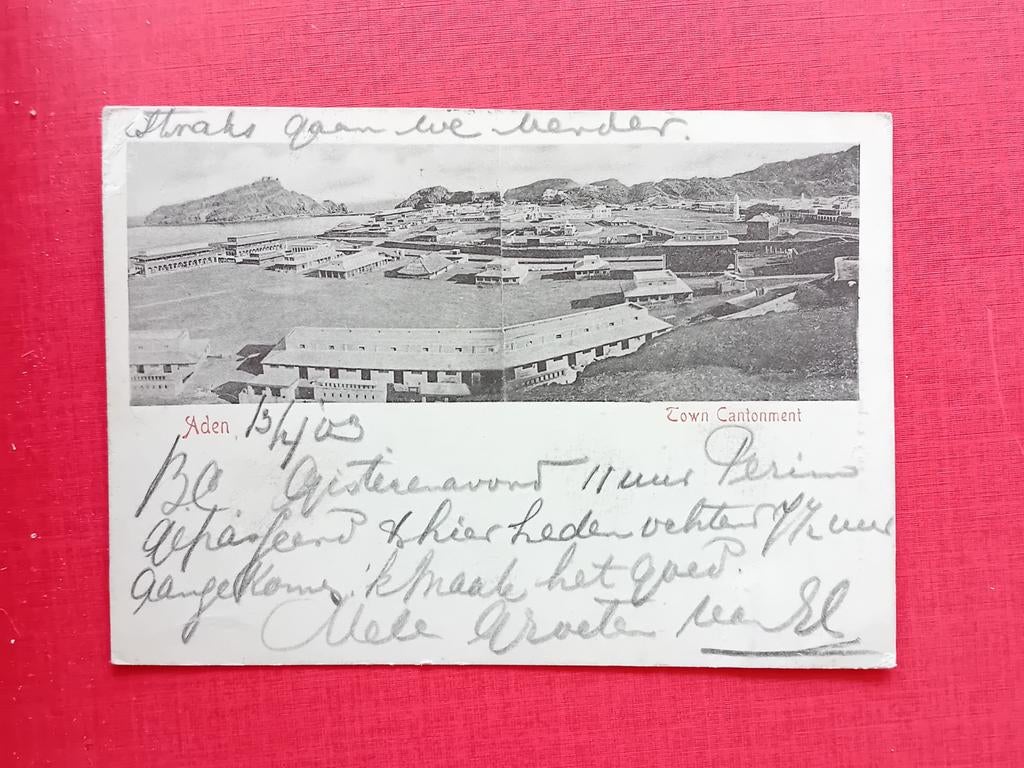 Straks gaan we verder.
Aden 13/4/03
Town Cantonment
B.C. Gisterenavond 11 uur Perim
gepasseerd & hier heden ochtend 7½ uur
aangekomen, 'k maak het goed.
Vele Groeten van El